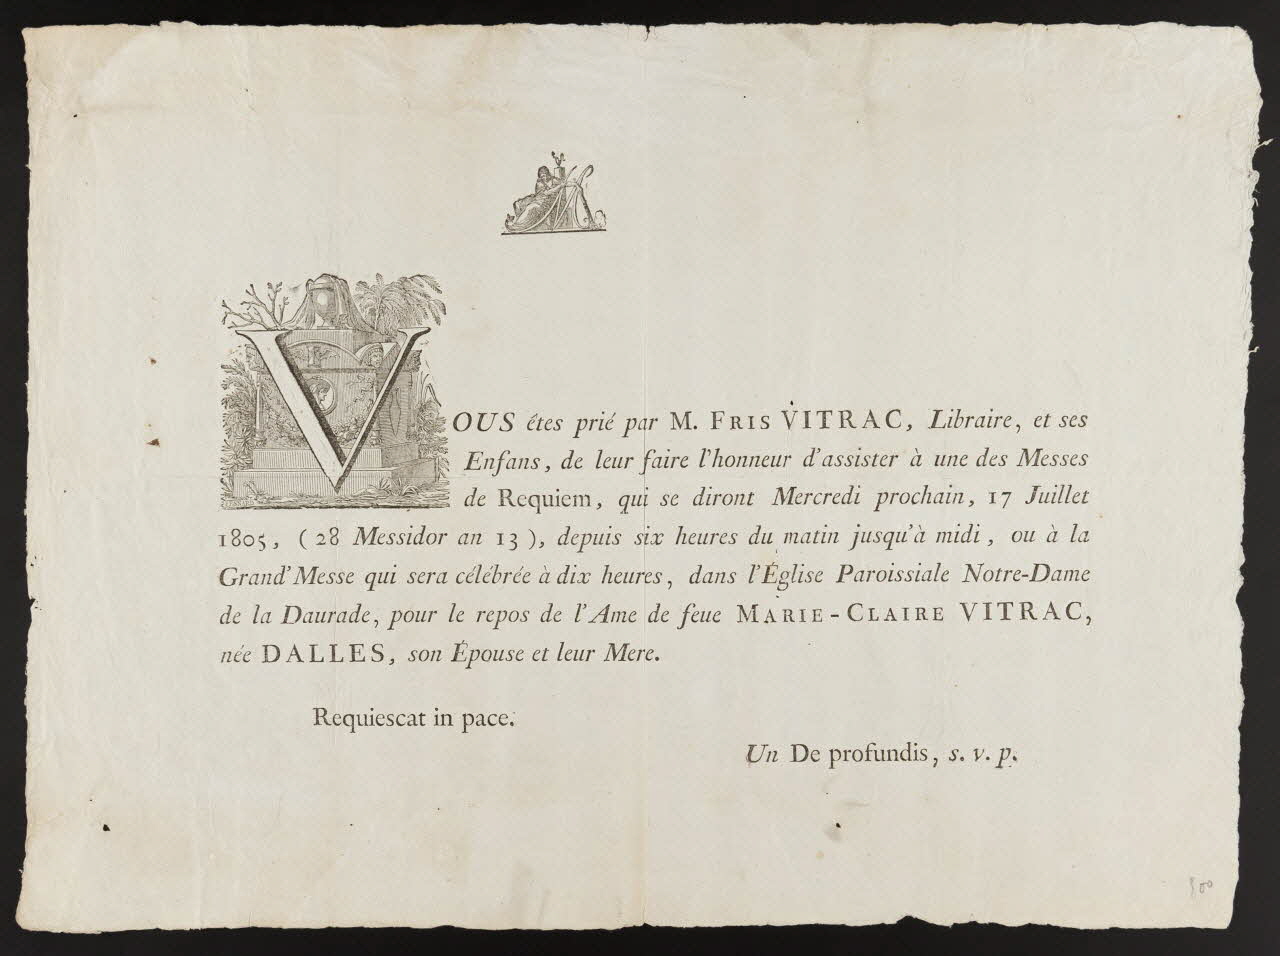 VOUS êtes prié par M. FRIS VITRAC, Libraire, et ses
Enfans, de leur faire l'honneur d'assister à une des Messes
de Requiem, qui se diront Mercredi prochain, 17 Juillet
1805, ( 28 Messidor an 13 ), depuis six heures du matin jusqu'à midi, ou à la
Grand'Messe qui sera célébrée à dix heures, dans l'Église Paroissiale Notre-Dame
de la Daurade, pour le repos de l'Ame de feue MARIE-CLAIRE VITRAC,
née DALLES, son Épouse et leur Mere.
Requiescat in pace.
Un De profundis, s. v. p.